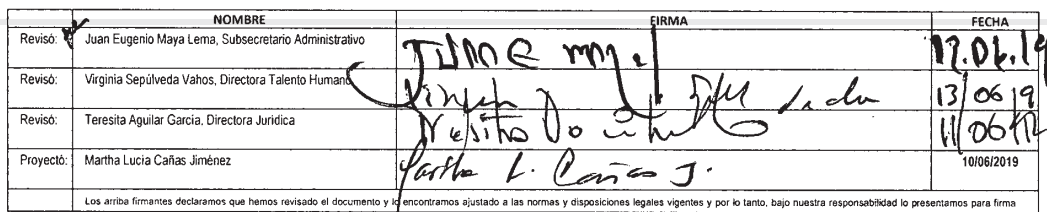 NOMBRE FIRMA FECHA
Revisó: Juan Eugenio Maya Lema, Subsecretario Administrativo
Revisó: Virginia Sepúlveda Vahos, Directora Talento Humano 13/06/19
Revisó: Teresita Aguilar García, Directora Jurídica
Proyectó: Martha Lucia Cañas Jiménez Martha L. Cañas J. 10/06/2019
Los arriba firmantes declaramos que hemos revisado el documento y lo encontramos ajustado a las normas y disposiciones legales vigentes y por lo tanto, bajo nuestra responsabilidad lo presentamos para firma